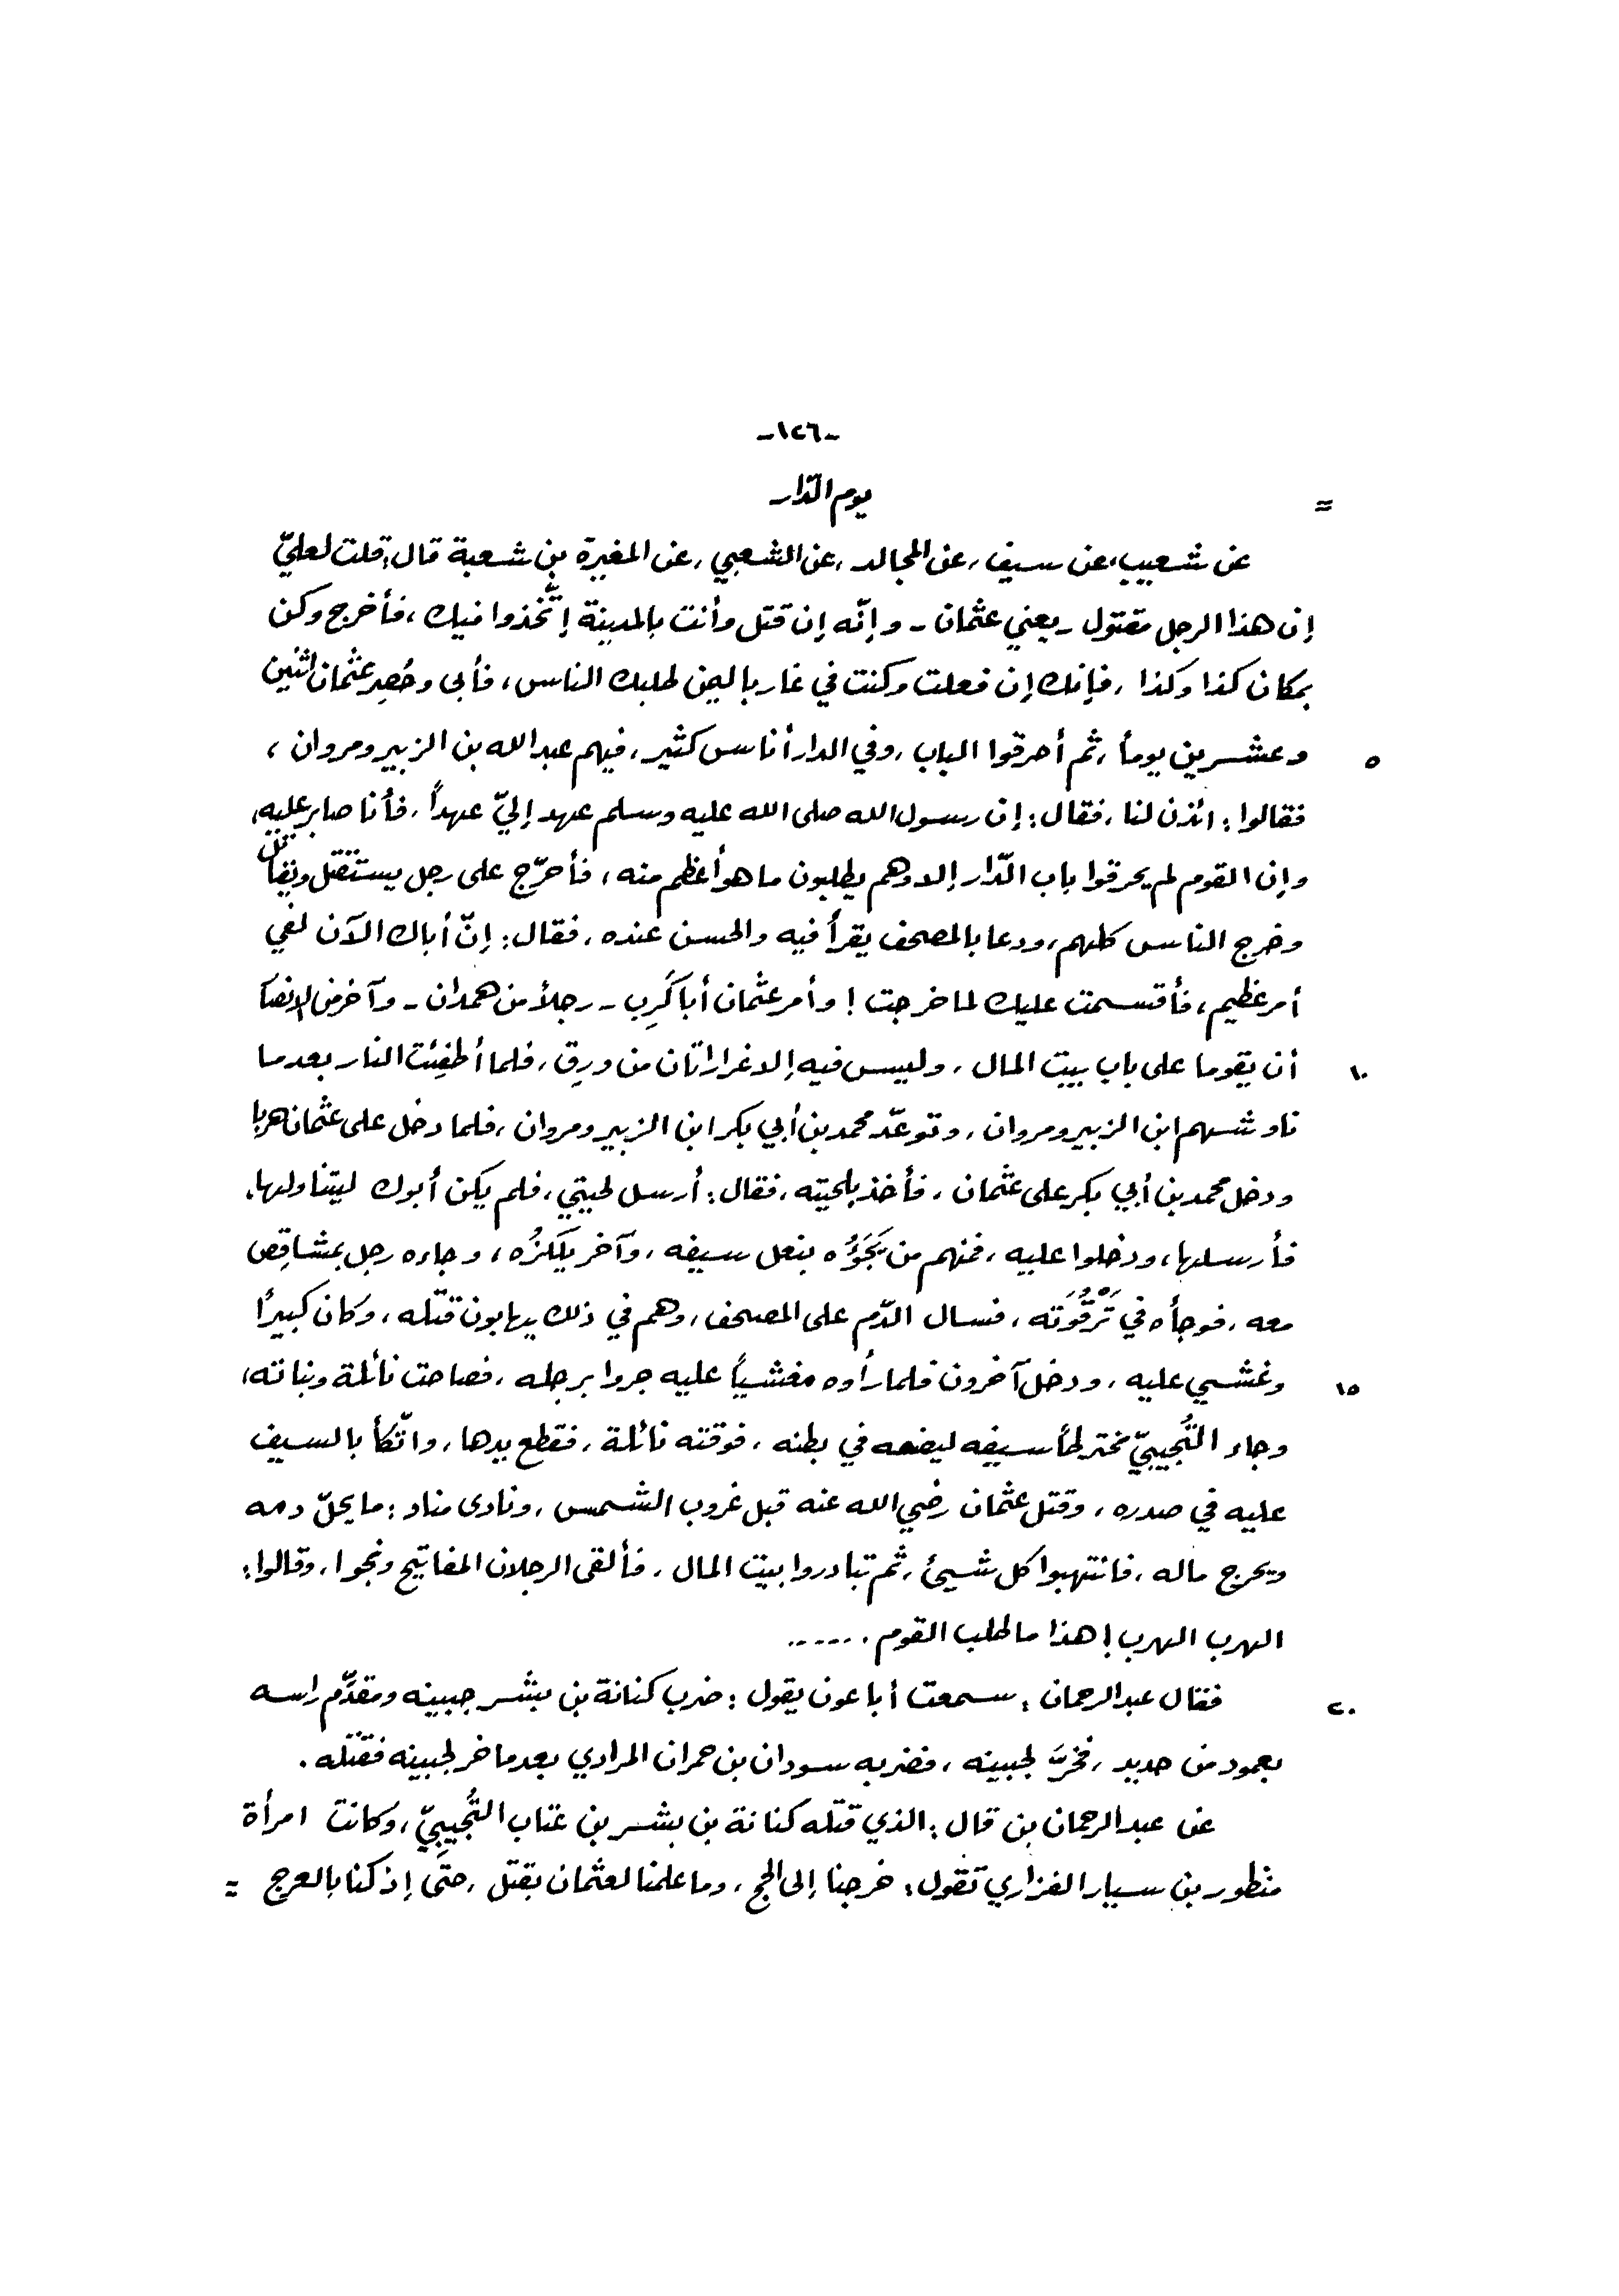 -١٢٦-
= يوم الدّار
عن شعيب، عن سيف، عن المجالد، عن الشعبي، عن المغيرة بن شعبة قال: قلت لعليّ
إن هذا الرجل مقتول - يعني عثمان - وإنّه إن قتل وأنت بالمدينة إتَّخذوا فيك، فأخرج وكن
بمكان كذا وكذا، فإنك إن فعلت وكنت في غار باليمن طلبك الناس، فأبى وحُصِر عثمان اثنين
٥ وعشرين يوماً، ثم أحرقوا الباب، وفي الدار أناس كثير، فيهم عبد الله بن الزبير ومروان،
فقالوا: ائذن لنا، فقال: إن رسول الله صلى الله عليه وسلم عهد إليّ عهداً، فأنا صابر عليه،
وإن القوم لم يحرقوا باب الدّار إلا وهم يطلبون ما هو أعظم منه، فأحرّج على رجل يستقتل ويقاتل
وخرج الناس كلهم، ودعا بالمصحف يقرأ فيه والحسن عنده، فقال: إنّ أباك الآن لفي
أمر عظيم، فأقسمت عليك لما خرجت! وأمر عثمان أبا كَرِب - رجلاً من همدان - وآخر من الانصا
١٠ أن يقوما على باب بيت المال، وليس فيه إلا غرارتان من ورِق، فلما أطفِئت النار بعدما
ناوشهم ابن الزبير ومروان، وتوعّد محمد بن أبي بكر ابن الزبير ومروان، فلما دخل على عثمان هربا
ودخل محمد بن أبي بكر على عثمان، فأخذ بلحيته، فقال: أرسل لحيتي، فلم يكن أبوك ليتناولها.
فأرسلها، ودخلوا عليه، فمنهم من يَجَؤُه بنعل سيفه، وآخر يلكزُه، وجاءه رجل بمشاقِص
معه، فوجأه في تَرْقُوَته، فسال الدّم على المصحف، وهم في ذلك يهابون قتله، وكان كبيرًا
١٥ وغشي عليه، ودخل آخرون فلما رأوه مغشياً عليه جروا برجله، فصاحت نائلة وبناته،
وجاء التُّجيبيّ مخترطاً سيفه ليضعه في بطنه، فوقته نائلة، فقطع يدها، واتّكأ بالسيف
عليه في صدره، وقتل عثمان رضي الله عنه قبل غروب الشمس، ونادى مناد: ما يحلّ دمه
ويحرج ماله، فانتهبوا كل شيئ، ثم تبادروا بيت المال، فألقى الرجلان المفاتيح ونجوا، وقالوا:
الهرب الهرب! هذا ما طلب القوم. .....
٢٠ فقال عبد الرحمان: سمعت أبا عون يقول: ضرب كنانة بن بشر جبينه ومقدَّم راسه
بعمود من حديد، فخرَّ لجبينه، فضربه سودان بن حمران المرادي بعدما خر لجبينه فقتله.
عن عبد الرحمان بن قال: الذي قتله كنانة بن بشر بن عتاب التُّجيبِيّ، وكانت امرأة
منظور بن سيار الفزاري تقول: خرجنا إلى الحج، وما علمنا لعثمان بقتل، حتى إذ كنا بالعرج =